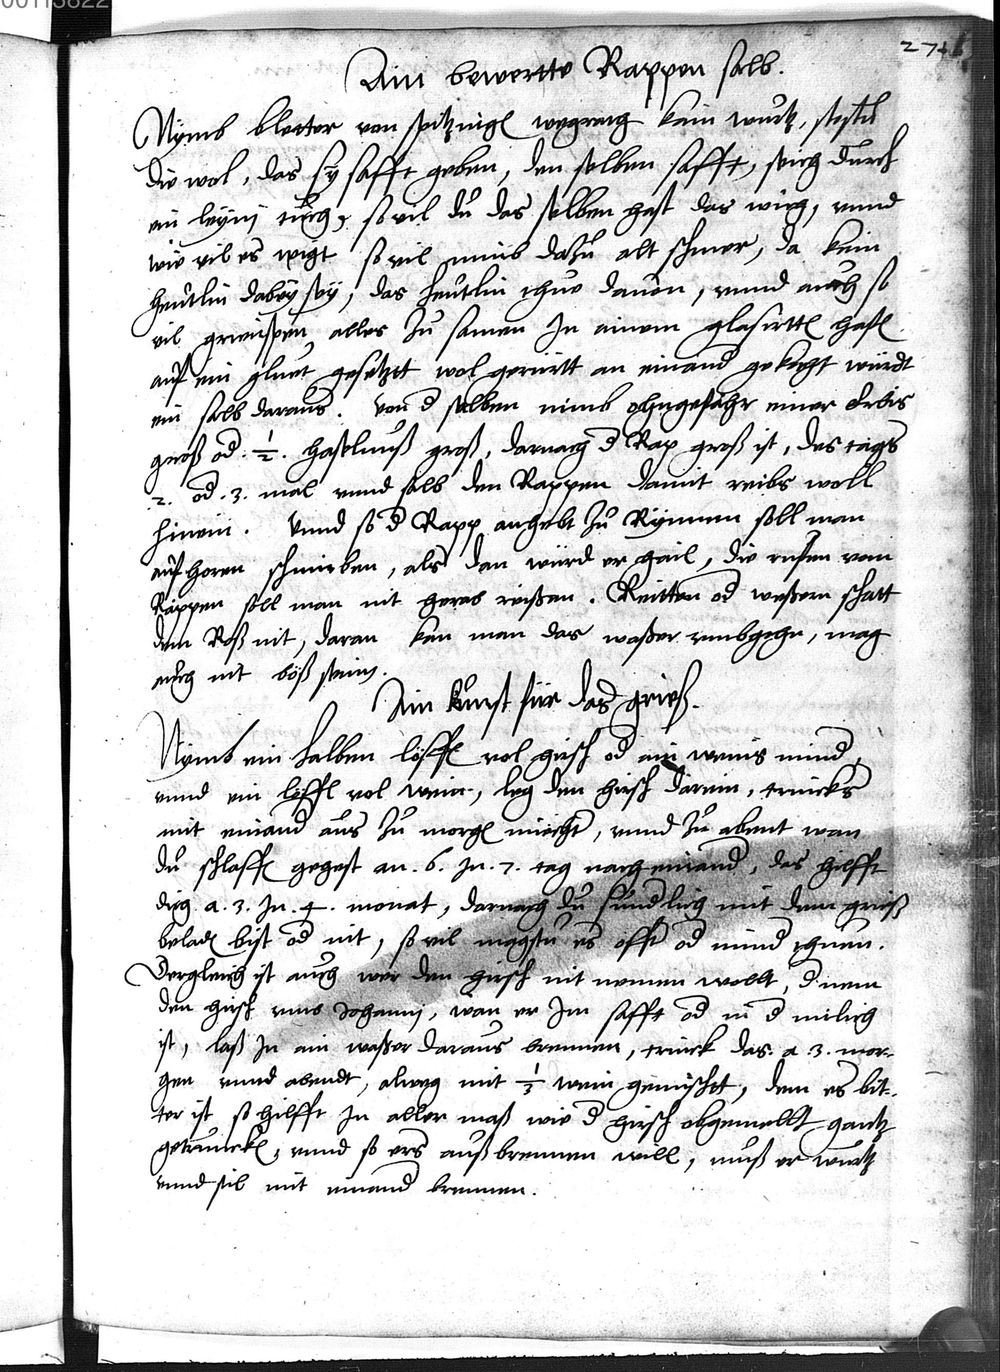 00113822
274
Ain bewertte Rappen salb.
Nÿmb bletter von spitzingl wegraig kain wurtz, stostu
die wol, das sy safft geben, den selben safft, seich durch
ein leynj tuech, so vil du des selben hast das wieg, vnnd
wie vil es wigt so vil nimb dazu alt schmer, da kein
heutlin dabey sey, das heutlin thue dauon, vnnd auch so
vil grienspen, alles zu samen In ainem glasirttl hafl
auf ein gluet gesetzt wol geruert an einand gekocht würdt
ein salb daraus. Von d salben nimb ohngefahr einer Erbis
groß od. ½. haselnuß groß, darnach d Rap groß ist, des tags
2. od. 3. mal vnnd salb den Rappen damit reibs woll
hinein. Vnnd so d Rapp anhebt zu Rÿnnen soll man
auf horen schmirben, als dan würd er hail, die rufen vom
Rappen soll man nit herab reißen. Reitten od weßern schatt
dem Roß nit, daran kan man das waßer vmbgehn, mag
auch nit böß sein.
Ain kunst für das grieß.
Nÿmb ein halben löffl vol hirsch od ain wenig mind,
vnnd ein löffl vol wein, leg den hirsch darein, trincks
mit einand aus zu morgl niecht, vnnd zu abent wan
du schlaffl gehest an. 6. In. 7. tag nach einand, das hilfft
dich a. 3. In. 4. monat, darnach du sündlich mit dem grieß
beladl bist od nit, so vil magstu es offt od mind thuen.
Dergleich ist auch wer den hirsch nit nemen wollt, d nem
den hirsch vmb Johannj, wan er Im safft od in d milich
ist, laß In ain waßer daraus brennen, trinck das. a. 3. mor-
gen vnnd abendt, alweg mit ⅓ wein gemischt, dem es bit-
ter ist so hilfft In aller maß wie d hirsch obgemellt gantz
getrunckl, vnnd so ers auß brennen will, muß er wurtz
vnnd stil mit einand brennen.